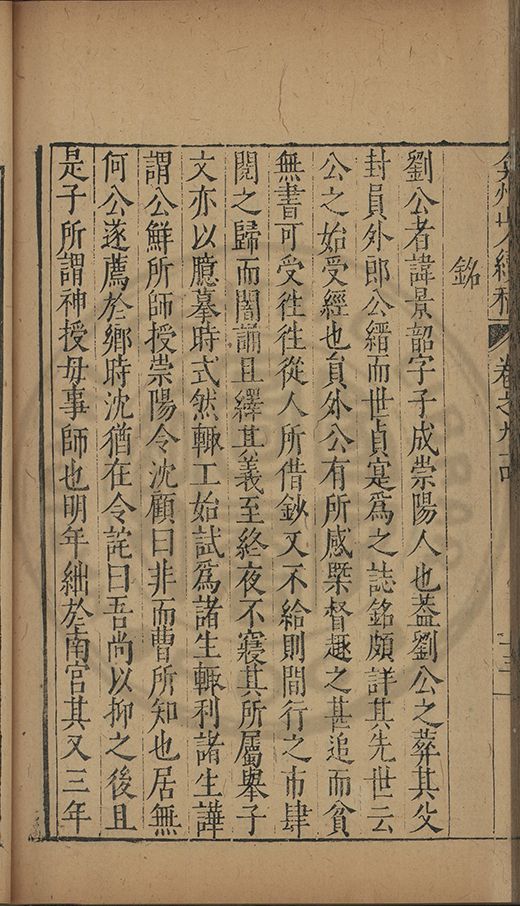 弇州山人續稿 卷之九十四 十三
銘
劉公者諱景韶字子成崇陽人也葢劉公之葬其父
封員外郎公縉而世貞寔爲之誌銘頗詳其先世云
公之始受經也員外公有所感槩督趣之甚迫而貧
無書可受徃徃從人所借鈔又不給則間行之市肆
閱之歸而闇誦且繹其義至終夜不寢其所屬舉子
文亦以臆摹時式然輙工始試爲諸生輙利諸生譁
謂公鮮所師授崇陽令沈顧曰非而曹所知也居無
何公遂薦於鄉時沈猶在令詫曰吾尚以抑之後且
是子所謂神授毋事師也明年絀於南宮其又三年